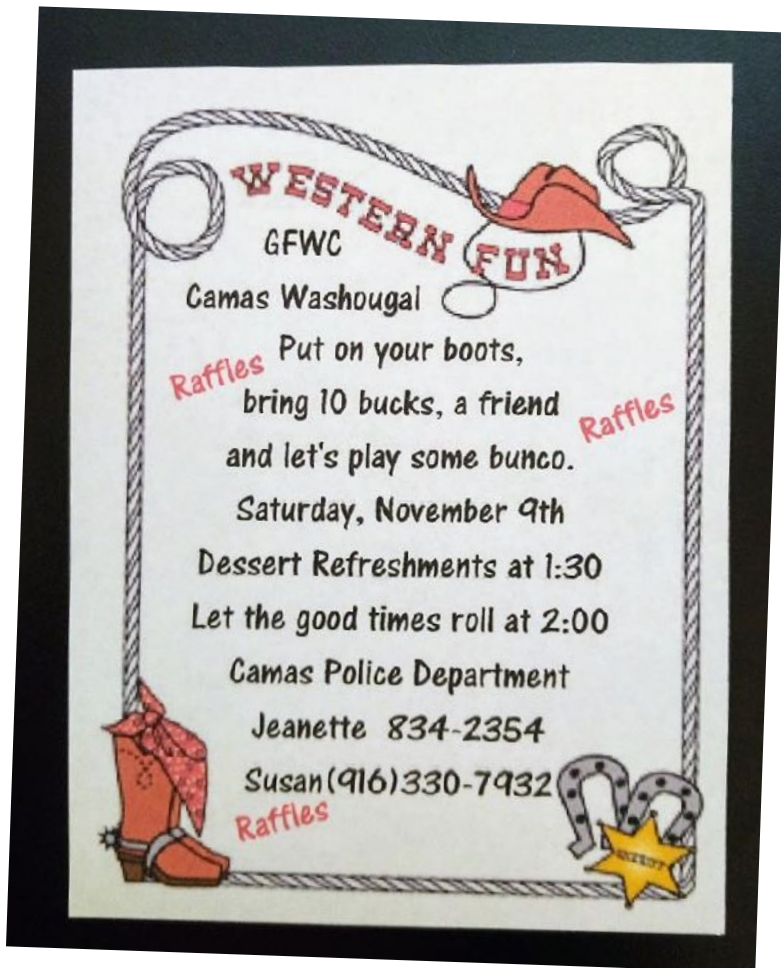 WESTERN FUN
GFWC
Camas Washougal
Put on your boots,
Raffles
bring 10 bucks, a friend
Raffles
and let's play some bunco.
Saturday, November 9th
Dessert Refreshments at 1:30
Let the good times roll at 2:00
Camas Police Department
Jeanette 834-2354
Susan(916)330-7932
Raffles